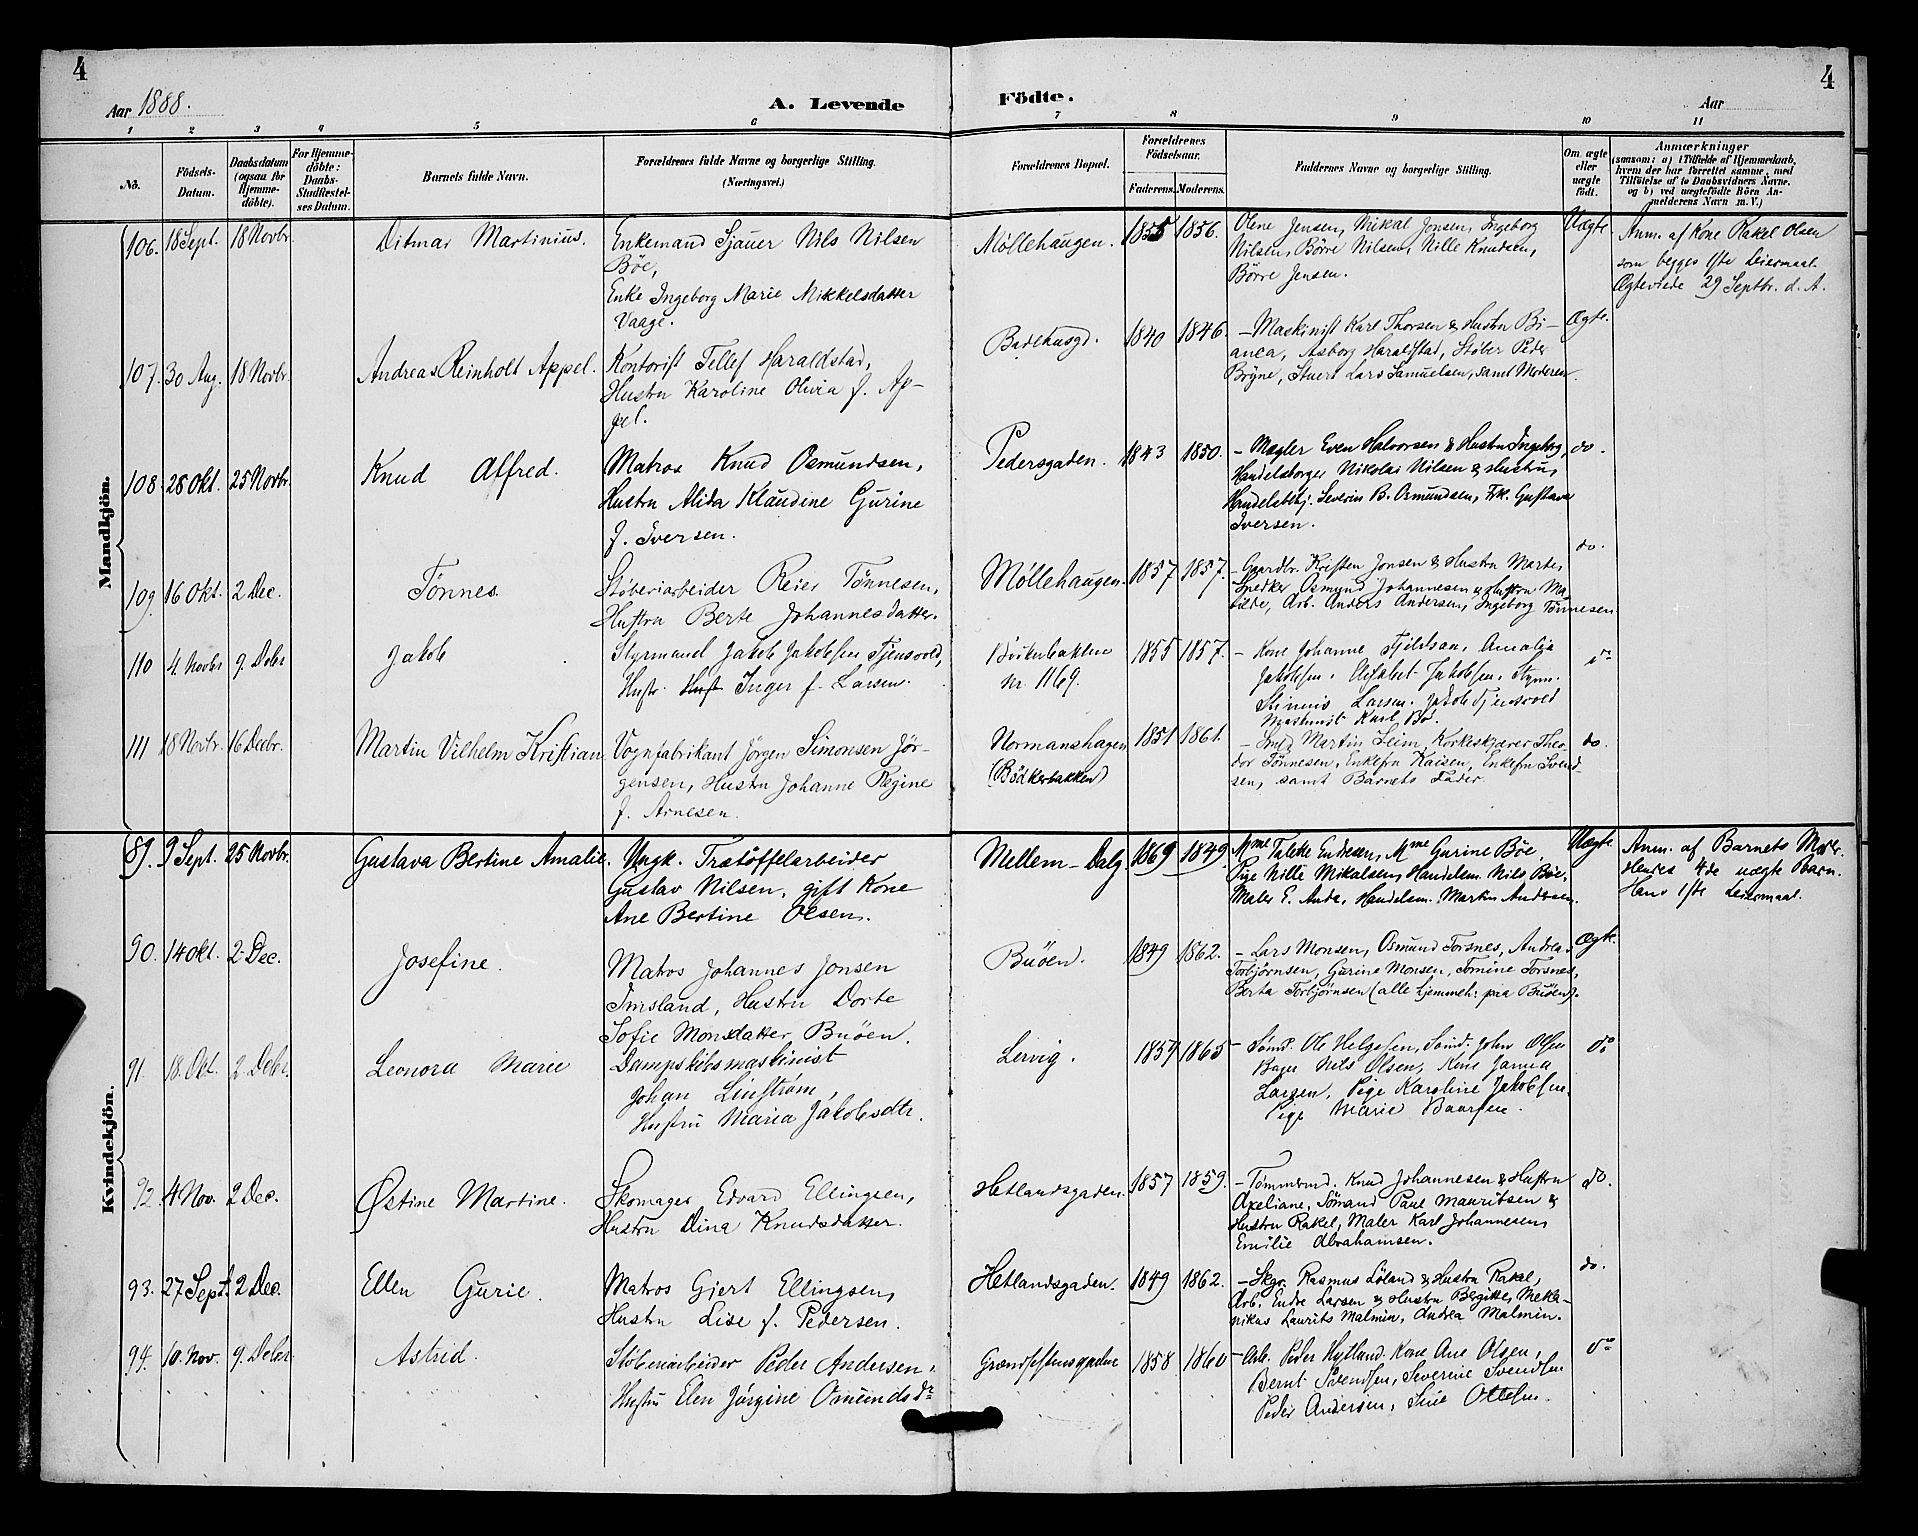 4
4
Aar 1888.
A. Levende
Födte.
Aar
1 2 3 4 5 6 7 8 9 10 11
No.
Födsels-
Datum.
Daabsdatum
(ogsaa for
Hjemme-
döbte).
For Hjemme-
döbte:
Daabs-
Stadfestel-
ses Datum.
Barnets fulde Navn.
Forældrenes fulde Navne og borgerlige Stilling.
(Næringsvei.)
Forældrenes Bopæl.
Forældrenes
Födselsaar.
Faderens.
Moderens.
Faddernes Navne og borgerlige Stilling.
Om ægte
eller
uægte
födt.
Anmærkninger
(saasom: a) i Tilfælde af Hjemmedaab,
hvem der har forrettet samme, med
Tilföielse af to Daabsvidners Navne,
og b) ved uægtefödte Börn An-
melderens Navn m. V.)
Mandkjön.
106. 18 Sept. 18 Novbr. Ditmar Martinius.
Enkemand Sjauer Nils Nilsen
Böe,
Enke Ingeborg Marie Mikkelsdatter
Vaage.
Møllehaugen. 1855 1856.
Olene Jensen, Mikal Jonsen, Ingeborg
Nilsen, Börre Nilsen, Nille Knudsen,
Börre Jensen.
Uægte
Anm. af Kone Rakel Olsen
som begges 1ste Leiermaal.
Ægteviede 29 Septbr. d. A.
107. 30 Aug. 18 Novbr. Andreas Reinholt Appel.
Kontorist Tellef Haraldstad,
Hustru Karoline Olivia f. Ap-
pel.
Badehusgd. 1840 1846.
- Maskinist Karl Thorsen & Hustru Bi-
anca, Asborg Haraldstad, Støber Peder
Bryne, Stuert Lars Samuelsen, samt Moderen.
Ægte.
108. 28 Okt. 25 Novbr. Knud Alfred.
Matros Knud Osmundsen,
Hustru Alida Klaudine Gurine
f. Iversen.
Pedersgaden. 1843 1850.
- Mægler Even Halvorsen & Hustru Ingeborg,
Handelsborger Nikolai Nilsen & Hustru,
Handelsbetj. Severin B. Osmundsen, Frk. Gustava
Iversen.
do.
109. 16 Okt. 2 Dec. Tönnes.
Støberiarbeider Reier Tönnesen,
Hustru Berte Johannesdatter.
Møllehaugen. 1857 1857.
- Gaardbr. Kristen Jonsen & Hustru Marte,
Snedker Osmund Johannesen & Hustru Ma-
tilde, Arb. Anders Andersen, Ingeborg Tönnesen
do.
110 4 Novbr 9 Debr Jakob
Styrmand Jakob Jakobsen Tjensvold,
Hustr. Hust Inger f. Larsen.
nr. 1169. 1855 1857.
- Kone Johanne Fjeldsaa, Amalia
Jakobsen, Elisabet Jakobsen, Styrm.
Larsen, Jakob Tjensvold
Maskinist Karl Bö.
do
111 18 Novbr. 16 Decbr. Martin Vilhelm Kristian
Vognfabrikant Jörgen Simonsen Jör-
gensen, Hustru Johanne Regine
f. Arnesen.
Normanshagen
(Bødkerbakken)
1851 1861.
- Smed Martin Leim, Korkeskjærer Theo-
dor Tönnesen, Enkefru Kaisen, Enkefru Svend-
sen, samt Barnets Fader.
do.
Kvindekjön.
89. 9 Sept. 25 Novbr. Gustava Bertine Amalie.
Ungk. Trætöffelarbeider
Gustav Nilsen, gift Kone
Ane Bertine Olsen.
Mellem-Dalg. 1869 1849
Mme Talette Endresen, Mme Gurine Böe,
Pige Nille Mikalsen, Handelsm. Nils Böe,
Maler E. Anda, Handelsm. Martin Andersen.
Uægte
Anm. af Barnets Moder.
Hendes 4de uægte Barn.
Hans 1ste Leiermaal.
90. 14 Okt. 2 Dec. Josefine.
Matros Johannes Jonsen
Imsland, Hustru Dorte
Sofie Monsdatter Buöen.
Buöen. 1849 1862.
- Lars Monsen, Osmund Torsnes, Andreas
Torbjörnsen, Gurine Monsen, Tomine Torsnes,
Berta Torbjörnsen (alle hjemmeh: paa Buöen).
Ægte.
91. 18. Okt. 2 Debr. Leonora Marie
Dampskibsmaskinist
Johan Linstrøm
Hustru Maria Jakobsdtr.
Lervig. 1859 1865
- Sömd. Ole Helgesen, Sömd. John Olsen
Bager Nils Olsen, Kone Janna
Larsen, Pige Karoline Jakobsen,
Pige Marie Baarsen.
do
92. 4 Nov. 2 Dec. Østine Martine.
Skomager Edvard Ellingsen,
Hustru Dina Knudsdatter.
Hetlandsgaden. 1857 1859.
- Tömmermd. Knud Johannesen & Hustru
Axeliane, Sömand Paul Mauritsen &
Hustru Rakel, Maler Karl Johannesen,
Emilie Abrahamsen.
do.
93. 27 Sept. 2 Dec. Ellen Gurie.
Matros Gjert Ellingsen,
Hustru Lise f. Pedersen.
Hetlandsgaden. 1849 1862.
- Skgr. Rasmus Löland & Hustru Rakel,
Arb. Endre Larsen & Hustru Bergitte, Meka-
nikus Laurits Malmin, Andrea Malmin.
do.
94. 10. Nov. 9. Debr. Astrid.
Støberiarbeider Peder Andersen,
Hustru Elen Jörgine Omundsdr
1858 1860
- Arb. Peder Hytland. Kone Ane Olsen,
Bernt Svendsen, Severine Svendsen
Peder Andersen, Sine Ottesen.
do